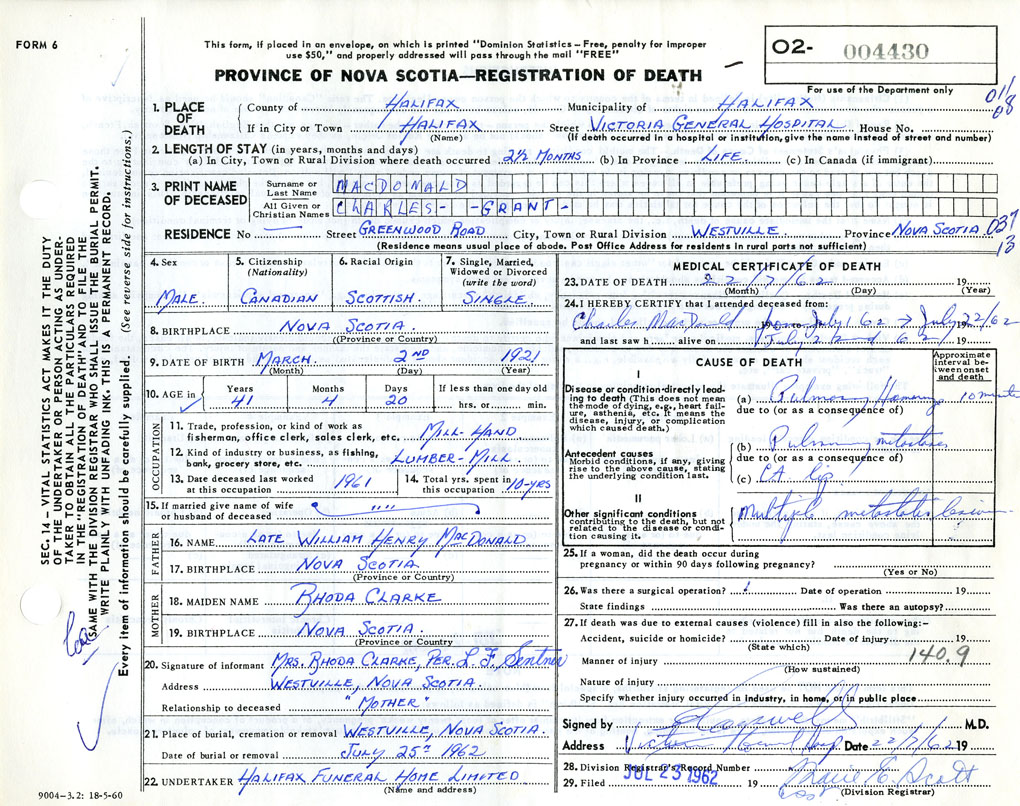 FORM 6
This form, if placed in an envelope, on which is printed "Dominion Statistics - Free, penalty for improper
use $50," and properly addressed will pass through the mail "FREE"
PROVINCE OF NOVA SCOTIA—REGISTRATION OF DEATH
02- 004430
For use of the Department only
011
08
1. PLACE OF DEATH
County of HALIFAX Municipality of HALIFAX
If in City or Town HALIFAX Street VICTORIA GENERAL HOSPITAL House No.
(Name) (If death occurred in a hospital or institution, give the name instead of street and number)
2. LENGTH OF STAY (in years, months and days)
(a) In City, Town or Rural Division where death occurred 2½ MONTHS (b) In Province LIFE (c) In Canada (if immigrant)
3. PRINT NAME OF DECEASED
Surname or Last Name MACDONALD
All Given or Christian Names CHARLES- -GRANT-
RESIDENCE No — Street GREENWOOD ROAD City, Town or Rural Division WESTVILLE Province NOVA SCOTIA 037
13
(Residence means usual place of abode. Post Office Address for residents in rural parts not sufficient)
4. Sex
MALE.
5. Citizenship (Nationality)
CANADIAN
6. Racial Origin
SCOTTISH.
7. Single, Married, Widowed or Divorced (write the word)
SINGLE
8. BIRTHPLACE NOVA SCOTIA.
(Province or Country)
9. DATE OF BIRTH MARCH 2ND 1921
(Month) (Day) (Year)
10. AGE in Years 41 Months 4 Days 20 If less than one day old hrs. or min.
OCCUPATION
11. Trade, profession, or kind of work as
fisherman, office clerk, sales clerk, etc. MILL-HAND
12. Kind of industry or business, as fishing,
bank, grocery store, etc. LUMBER-MILL.
13. Date deceased last worked
at this occupation 1961
14. Total yrs. spent in
this occupation 10-YRS
15. If married give name of wife
or husband of deceased " "
FATHER
16. NAME LATE WILLIAM HENRY MACDONALD
17. BIRTHPLACE NOVA SCOTIA
(Province or Country)
MOTHER
18. MAIDEN NAME RHODA CLARKE
19. BIRTHPLACE NOVA SCOTIA.
(Province or Country
20. Signature of informant MRS. RHODA CLARKE, PER. L.F. Sentner
Address WESTVILLE, NOVA SCOTIA.
Relationship to deceased "MOTHER"
21. Place of burial, cremation or removal WESTVILLE, NOVA SCOTIA.
Date of burial or removal JULY 25TH 1962
22. UNDERTAKER HALIFAX FUNERAL HOME LIMITED
(Name and address)
9004-3.2: 18-5-60
MEDICAL CERTIFICATE OF DEATH
23. DATE OF DEATH 22/7/62 19
(Month) (Day) (Year)
24. I HEREBY CERTIFY that I attended deceased from:
Charles MacDonald 19 from July 1 62 → July 22/62 19
and last saw h alive on July 22nd 62 19
CAUSE OF DEATH
Approximate interval between onset and death
I
Disease or condition directly leading to death (This does not mean the mode of dying, e.g., heart failure, asthenia, etc. It means the disease, injury, or complication which caused death.)
(a) Pulmonary 10 minute
due to (or as a consequence of)
(b) Pulmonary metastases
Antecedent causes
Morbid conditions, if any, giving rise to the above cause, stating the underlying condition last.
due to (or as a consequence of)
(c) CA. lip
II
Other significant conditions
contributing to the death, but not related to the disease or condition causing it.
Multiple metastatic lesions
25. If a woman, did the death occur during
pregnancy or within 90 days following pregnancy?
(Yes or No)
26. Was there a surgical operation? Date of operation 19
State findings Was there an autopsy?
27. If death was due to external causes (violence) fill in also the following:-
Accident, suicide or homicide? Date of injury 19
(State which)
140.9
Manner of injury
(How sustained)
Nature of injury
Specify whether injury occurred in industry, in home, or in public place
Signed by M.D.
Address Victoria General Hosp Date 22/7/62 19
28. Division Registrar's Record Number
29. Filed JUL 25 1962 19 Marie E. Scott
(Division Registrar)
SEC. 14—VITAL STATISTICS ACT MAKES IT THE DUTY
OF THE UNDERTAKER OR PERSON ACTING AS UNDER-
TAKER TO OBTAIN ALL THE PARTICULARS REQUIRED
IN THE "REGISTRATION OF DEATH" AND TO FILE THE
SAME WITH THE DIVISION REGISTRAR WHO SHALL ISSUE THE BURIAL PERMIT.
WRITE PLAINLY WITH UNFADING INK. THIS IS A PERMANENT RECORD.
Every item of information should be carefully supplied. (See reverse side for instructions.)